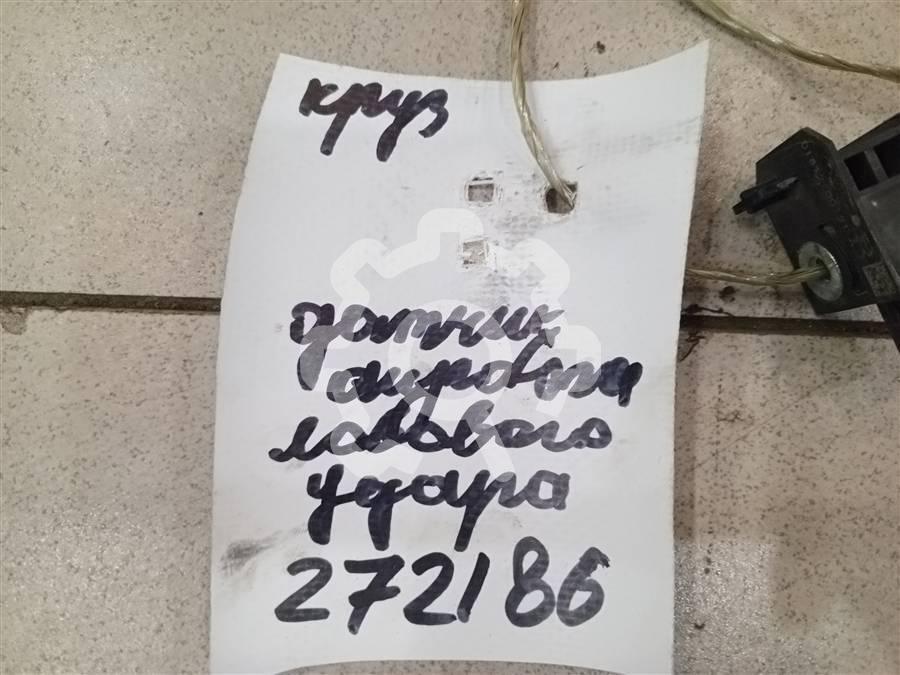 круз
датчик
аирбага
лобового
удара
272186